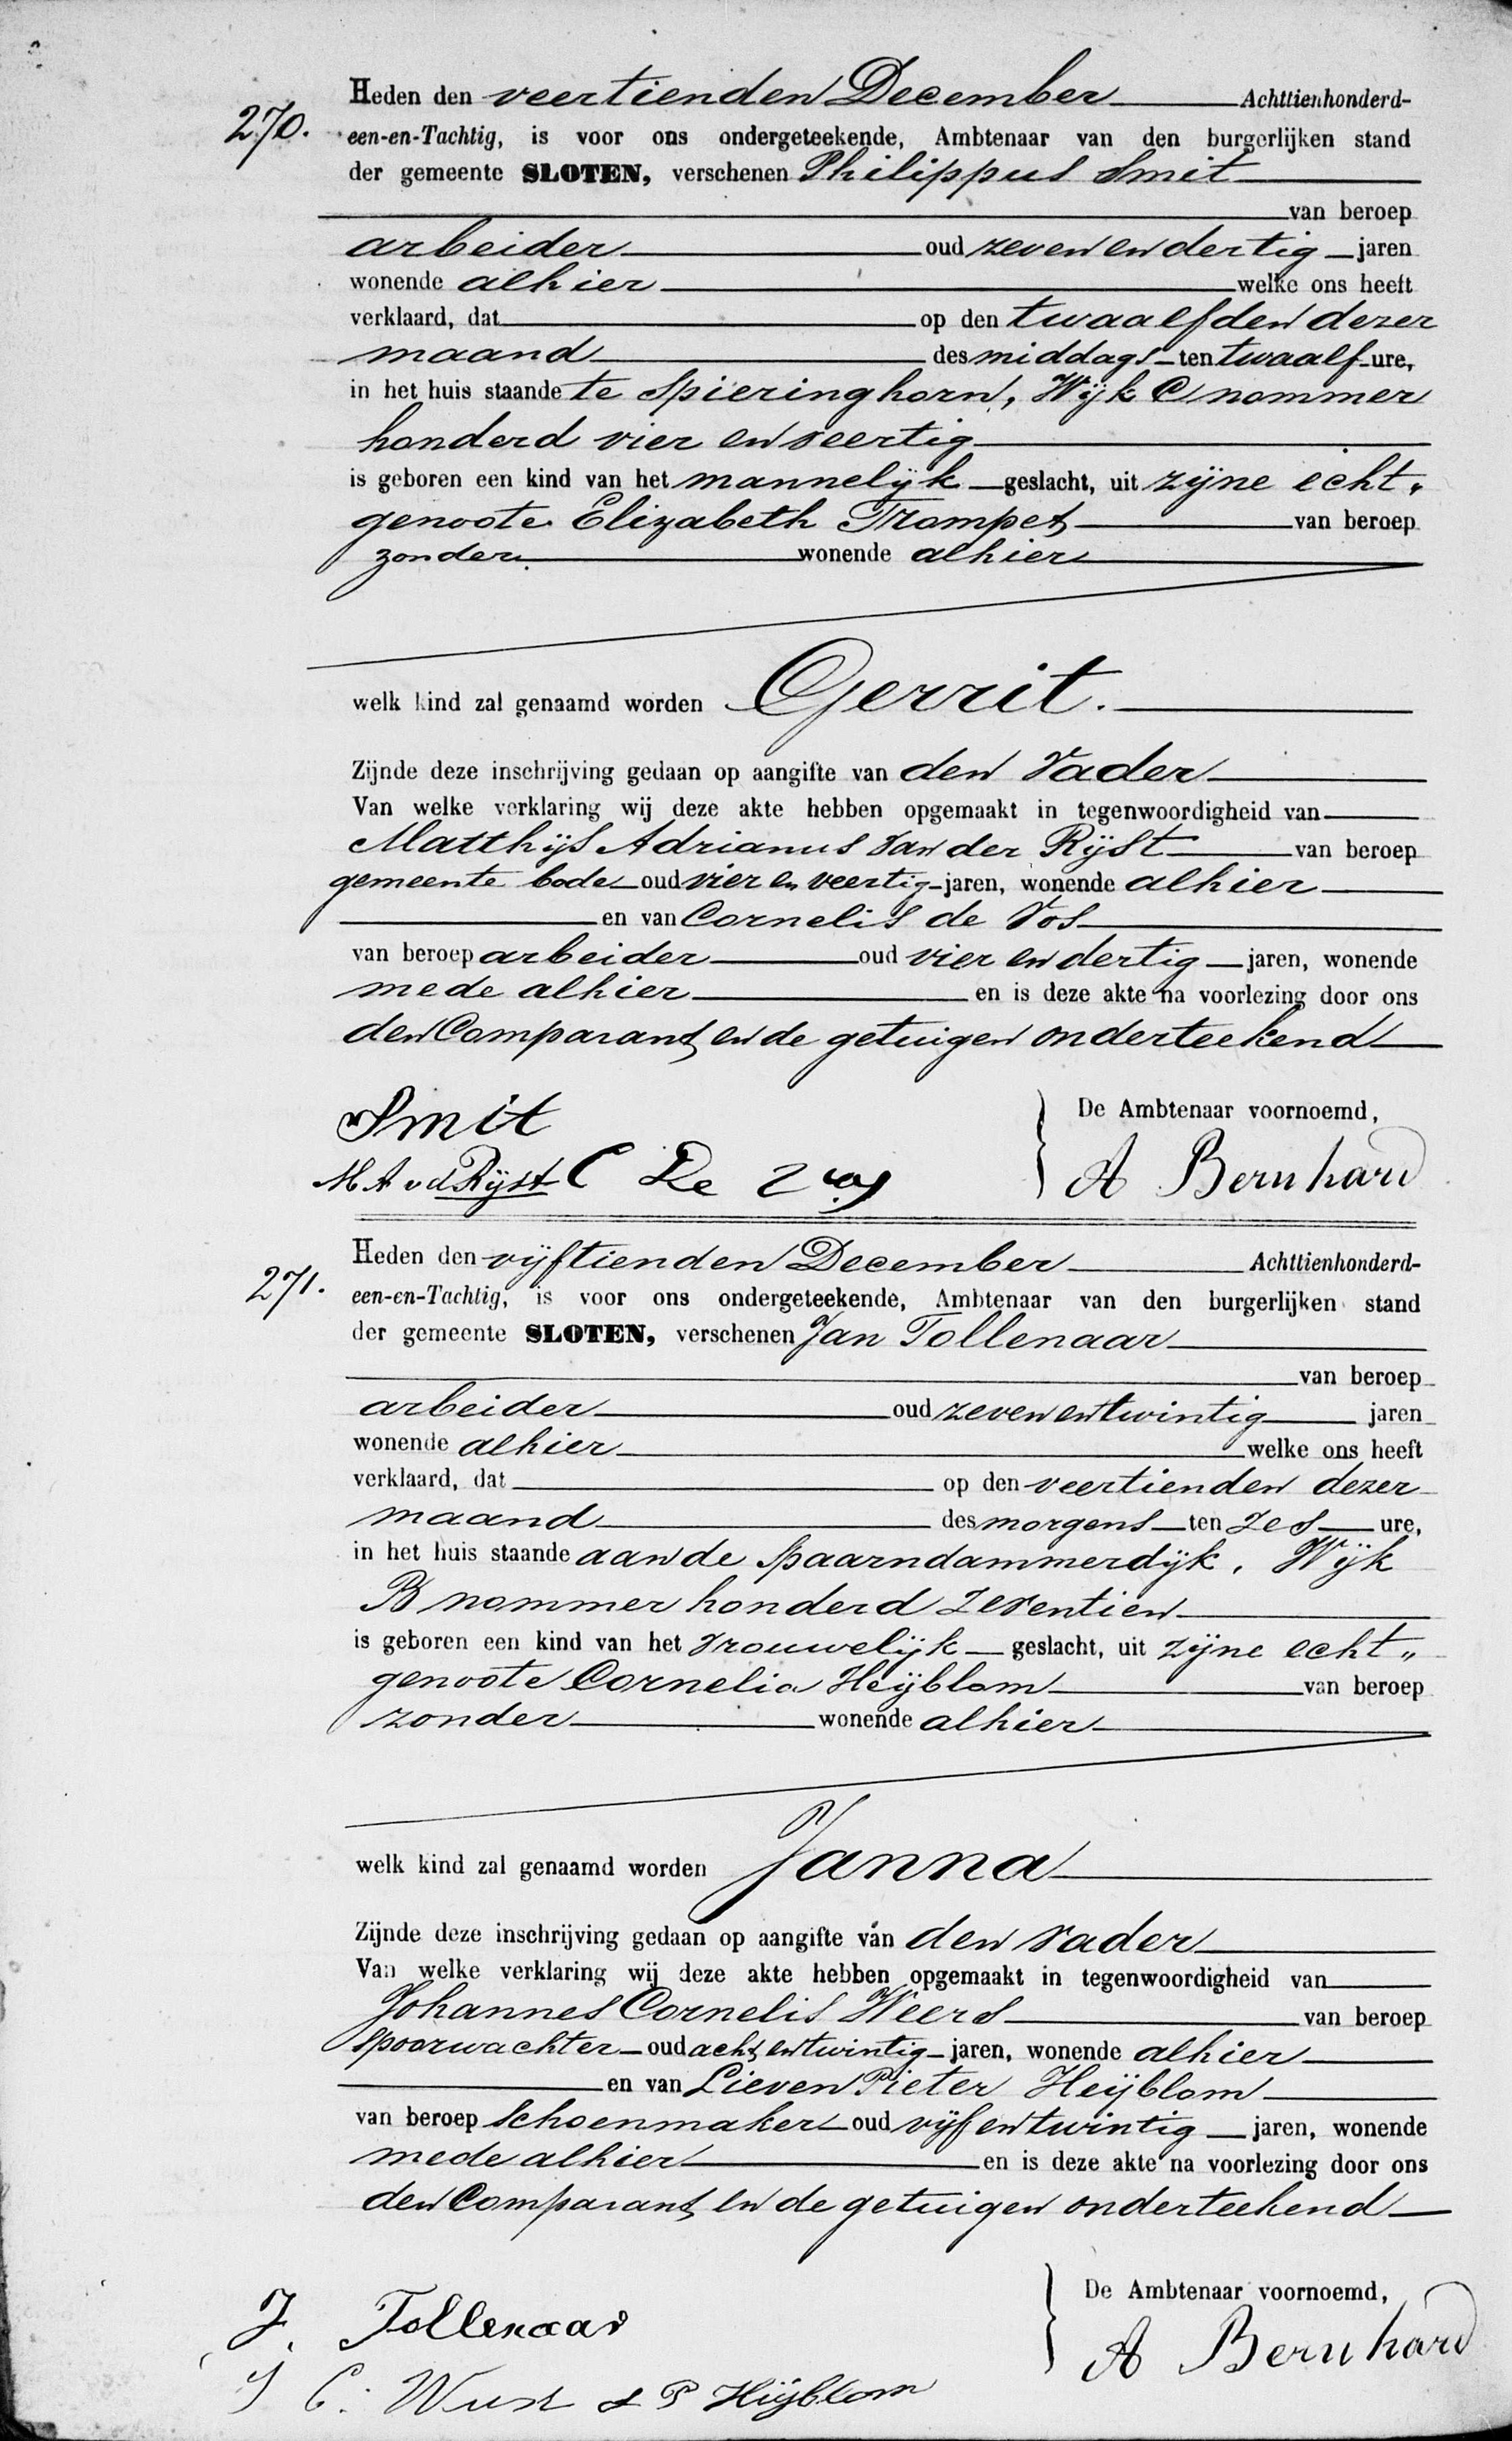 270.
Heden den veertienden December Achttienhonderd-
een-en-Tachtig, is voor ons ondergeteekende, Ambtenaar van den burgerlijken stand
der gemeente SLOTEN, verschenen Philippus Smit
van beroep
arbeider oud zeven en dertig jaren
wonende alhier welke ons heeft
verklaard, dat op den twaalfden dezer
maand des middags ten twaalf ure,
in het huis staande te Spieringhorn, Wijk C nommer
honderd vier en veertig
is geboren een kind van het mannelijk geslacht, uit zijne echt„
genoote Elizabeth Trompet van beroep
zonder wonende alhier
welk kind zal genaamd worden Gerrit.
Zijnde deze inschrijving gedaan op aangifte van den Vader
Van welke verklaring wij deze akte hebben opgemaakt in tegenwoordigheid van
Matthijs Adrianus van der Rijst van beroep
gemeente bode oud vier en veertig jaren, wonende alhier
en van Cornelis de Vos
van beroep arbeider oud vier en dertig jaren, wonende
mede alhier en is deze akte na voorlezing door ons
den Comparant en de getuigen onderteekend
De Ambtenaar voornoemd,
Smit
M A v d Rijst C De Vos A Bernhard
271.
Heden den vijftienden December Achttienhonderd-
een-en-Tachtig, is voor ons ondergeteekende, Ambtenaar van den burgerlijken stand
der gemeente SLOTEN, verschenen Jan Tollenaar
van beroep
arbeider oud zeven en twintig jaren
wonende alhier welke ons heeft
verklaard, dat op den veertienden dezer
maand des morgens ten zes ure,
in het huis staande aan de Spaarndammerdijk, Wijk
B nommer honderd zeventien
is geboren een kind van het vrouwelijk geslacht, uit zijne echt„
genoote Cornelia Heijblom van beroep
zonder wonende alhier
welk kind zal genaamd worden Janna
Zijnde deze inschrijving gedaan op aangifte van den vader
Van welke verklaring wij deze akte hebben opgemaakt in tegenwoordigheid van
Johannes Cornelis Weers van beroep
spoorwachter oud acht en twintig jaren, wonende alhier
en van Lieven Pieter Heijblom
van beroep Schoenmaker oud vijf en twintig jaren, wonende
mede alhier en is deze akte na voorlezing door ons
den Comparant en de getuigen onderteekend
De Ambtenaar voornoemd,
J. Tollenaar A Bernhard
J C. L P Heijblom